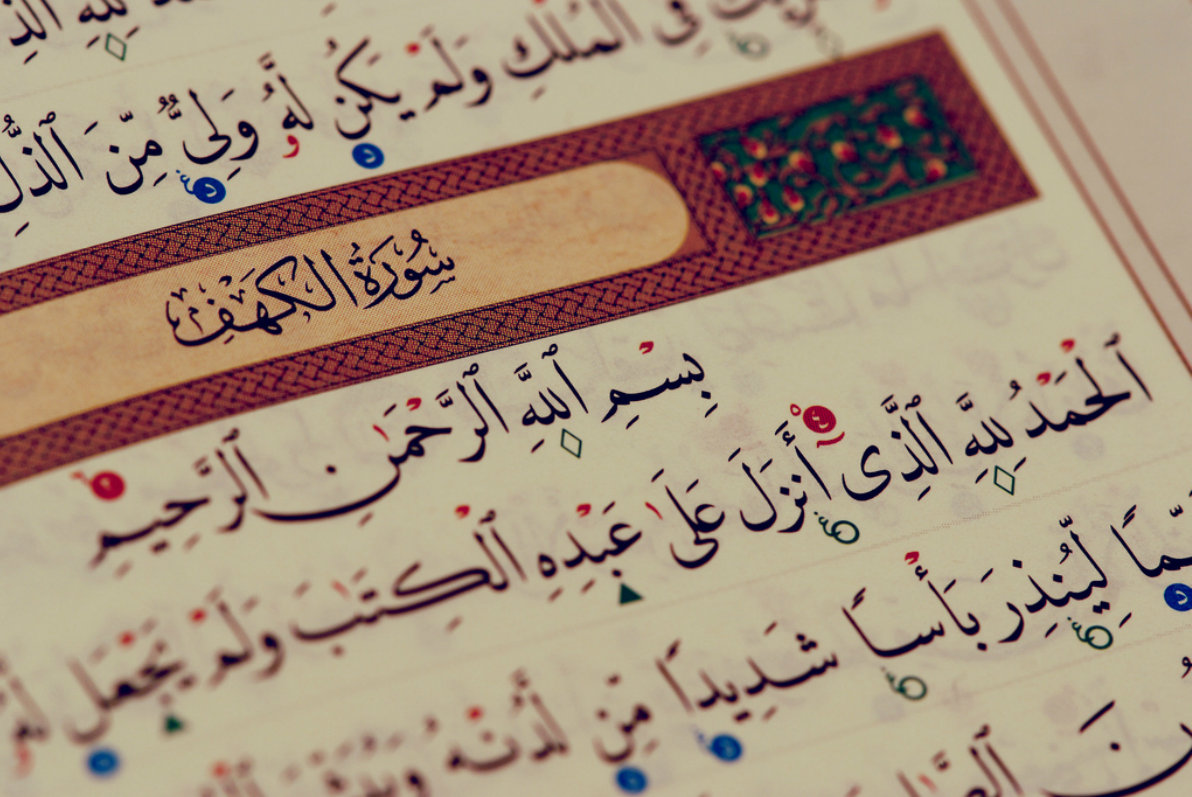 لِلَّهِ ٱلَّذِى
فِى ٱلْمُلْكِ وَلَمْ يَكُن لَّهُۥ وَلِىٌّ مِّنَ ٱلذُّلِّ
سُورَةُ الكَهْفِ
بِسْمِ ٱللَّهِ ٱلرَّحْمَٰنِ ٱلرَّحِيمِ
ٱلْحَمْدُ لِلَّهِ ٱلَّذِىٓ أَنزَلَ عَلَىٰ عَبْدِهِ ٱلْكِتَٰبَ وَلَمْ يَجْعَل لَّهُۥ
لِّيُنذِرَ بَأْسًا شَدِيدًا مِّن لَّدُنْهُ